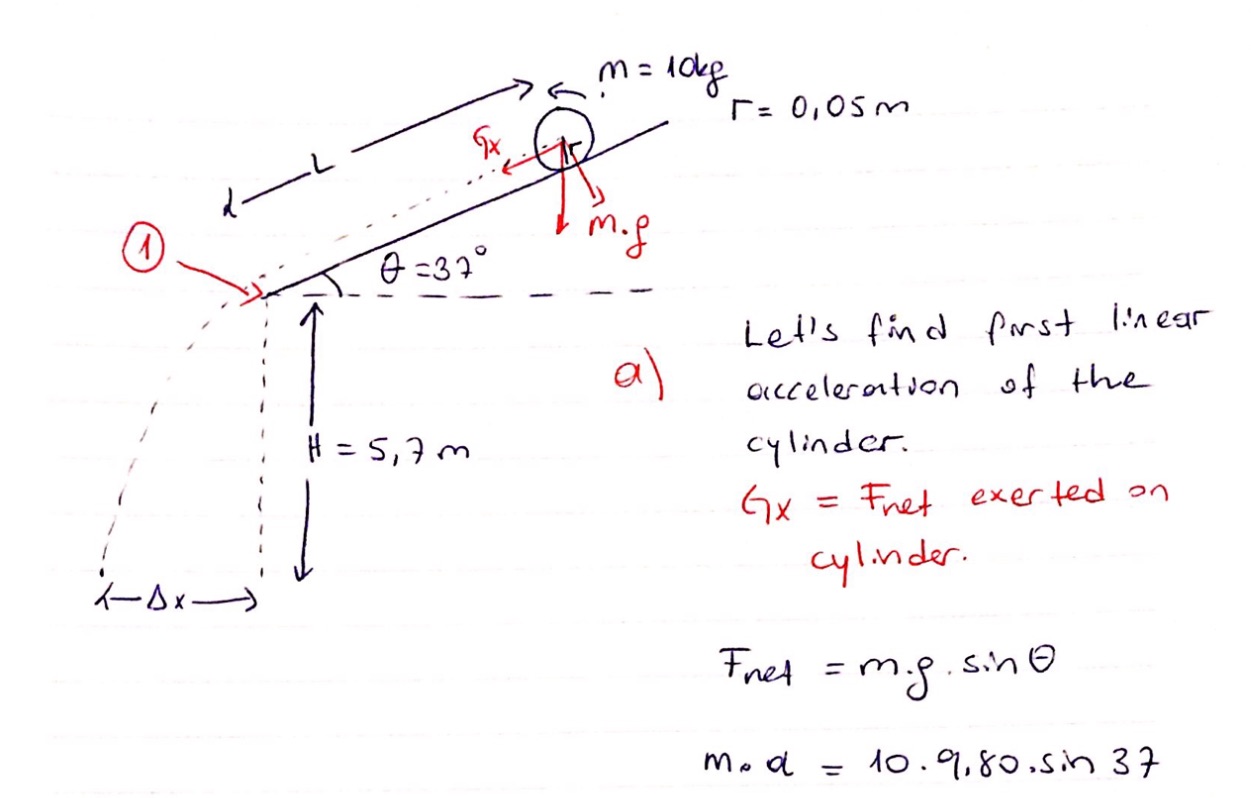 m = 10kg
r = 0,05 m
L
Gx
r
m.g
1
θ = 37°
H = 5,7 m
Δx
a)
Let's find first linear
acceleration of the
cylinder.
Gx = Fnet exerted on
cylinder.
Fnet = m.g.sinθ
m.a = 10.9,80.sin 37